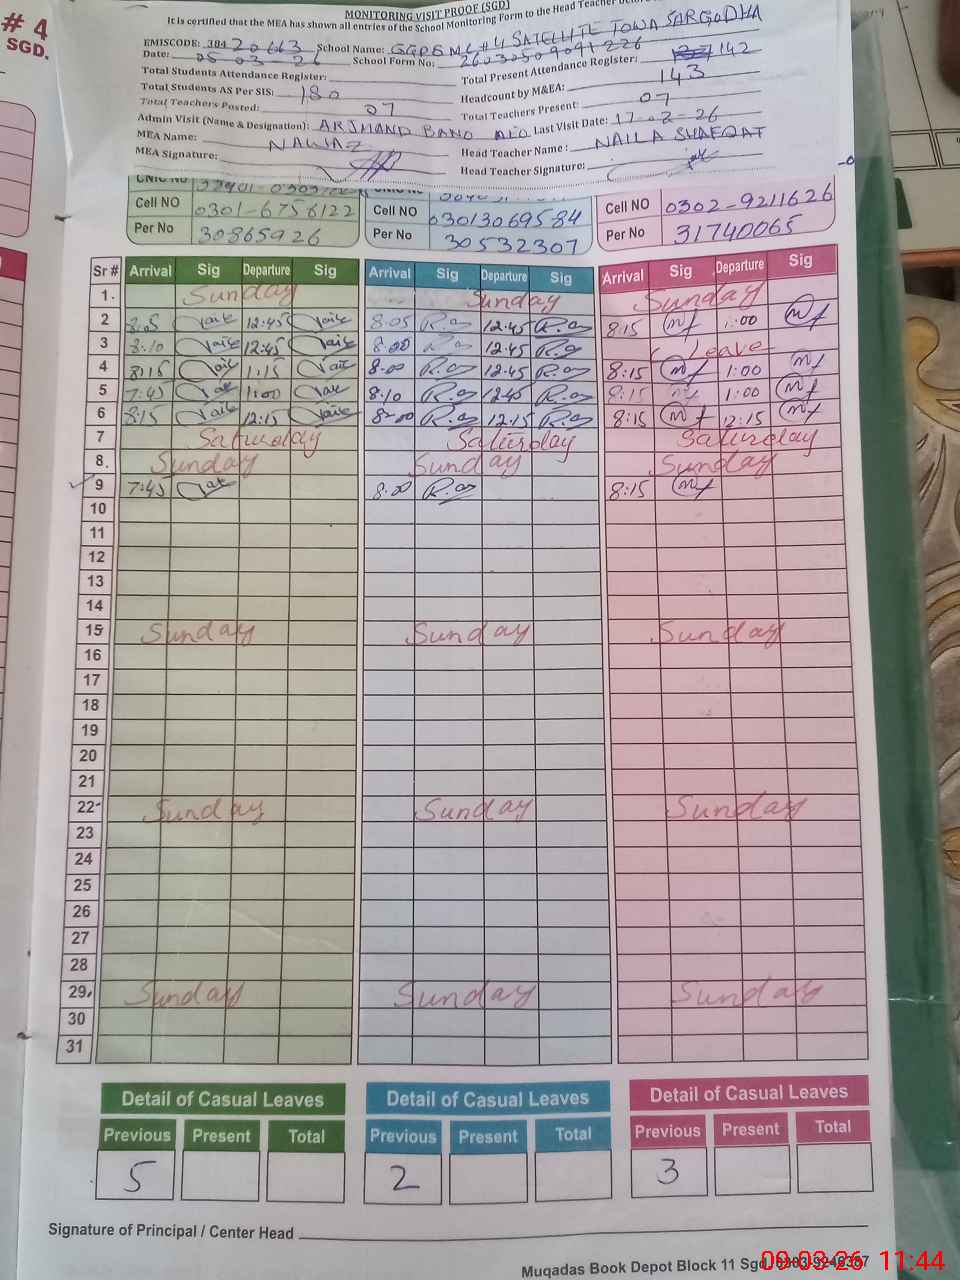 # 4
SGD.
MONITORING VISIT PROOF (SGD)
It is certified that the MEA has shown all entries of the School Monitoring Form to the Head Teacher before
EMISCODE: 384 20663 School Name: GGPS MC #4 SATELLITE TOWN SARGODHA
Date: 05-03-26 School Form No: 26030509091226
Total Students Attendance Register: Total Present Attendance Register: 142
Total Students AS Per SIS: 180 Headcount by M&EA: 143
Total Teachers Posted: 07 Total Teachers Present: 07
Admin Visit (Name & Designation): ARJMAND BANO AEO Last Visit Date: 17-02-26
MEA Name: NAWAZ Head Teacher Name: NAILA SHAFQAT
MEA Signature: Head Teacher Signature:
CNIC NO
Cell NO 0301-6756122 Cell NO 03013069584 Cell NO 0302-9211626
Per No 30865926 Per No 30532307 Per No 31740065
Sr # Arrival Sig Departure Sig Arrival Sig Departure Sig Arrival Sig Departure Sig
1. Sunday Sunday Sunday
2 8:05 12:45 8:05 R.a 12:45 R.a 8:15 1:00
3 8:10 12:45 8:00 R.a 12:45 R.a Leave
4 8:15 1:15 8:00 R.a 12:45 R.a 8:15 1:00
5 7:45 1:00 8:10 R.a 12:45 R.a 8:15 1:00
6 8:15 12:15 8:00 R.a 12:15 R.a 8:15 12:15
7 Saturday Saturday Saturday
8. Sunday Sunday Sunday
9 7:45 8:00 R.a 8:15
10
11
12
13
14
15 Sunday Sunday Sunday
16
17
18
19
20
21
22 Sunday Sunday Sunday
23
24
25
26
27
28
29 Sunday Sunday Sunday
30
31
Detail of Casual Leaves Detail of Casual Leaves Detail of Casual Leaves
Previous Present Total Previous Present Total Previous Present Total
5 2 3
Signature of Principal / Center Head
Muqadas Book Depot Block 11 Sgd.
09-03-26 11:44